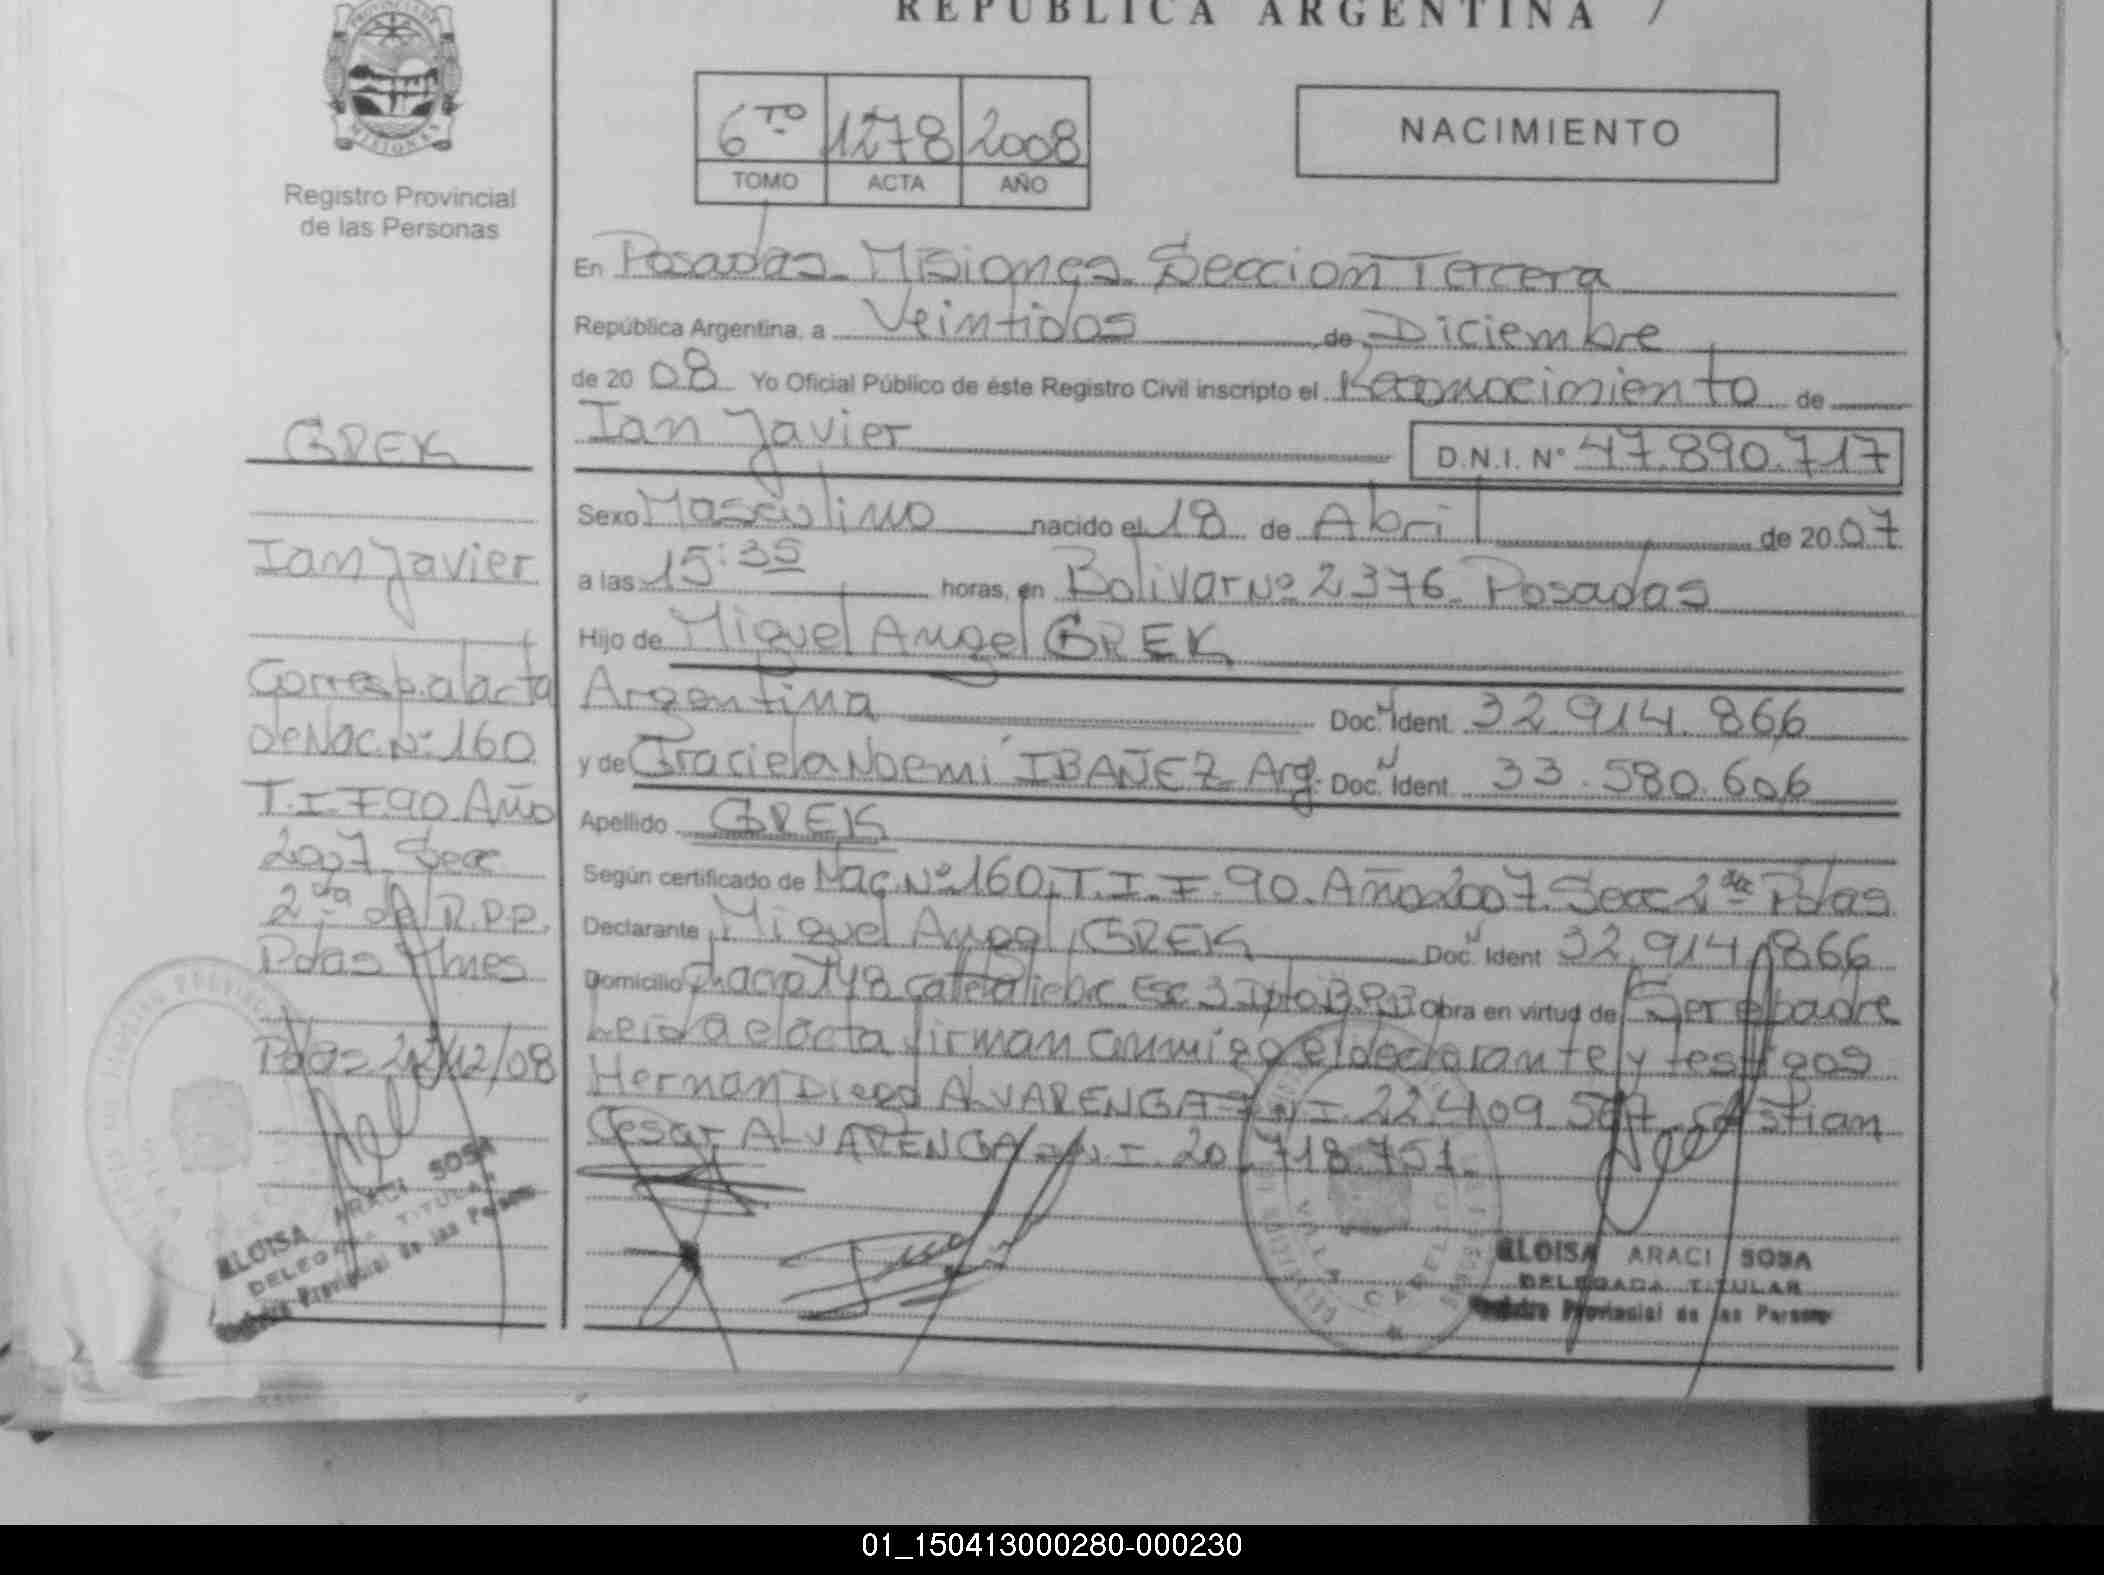 REPUBLICA ARGENTINA
MISIONES
Registro Provincial
de las Personas
6TO 1278 2008
TOMO ACTA AÑO
NACIMIENTO
En Posadas Misiones Seccion Tercera
República Argentina, a Veintidos de Diciembre
de 2008 Yo Oficial Público de éste Registro Civil inscripto el Reconocimiento de
Ian Javier D.N.I. Nº 47.890.717
Sexo Masculino nacido el 18 de Abril de 2007
a las 15:35 horas, en Bolivar Nº 2376 Posadas
Hijo de Miguel Angel GREK
Argentina Doc. Ident. 32.914.866
y de Graciela Noemi IBAÑEZ Arg. Doc. Ident. 33.580.606
Apellido GREK
Según certificado de Nac. Nº 160 T.I F.90 Año 2007 Secc 2da Pdas
Declarante Miguel Angel GREK Doc. Ident 32.914.866
Domicilio Chacra 148 Esc 3 obra en virtud de Ser el padre
Leida el acta firman conmigo el declarante y testigos
Hernan Diego ALVARENGA 22.409 
Cesar ALVARENGA 20.718.751.
ELOISA ARACI SOSA
DELEGADA TITULAR
Registro Provincial de las Personas
GREK
Ian Javier
Corresp. al acta
de Nac. Nº 160
T.I F.90 Año
2007 Secc
2da del R.P.P.
Pdas Mnes
Pdas 22/12/08
ELOISA ARACI SOSA
DELEGADA TITULAR
Registro Provincial de las Personas
01_150413000280-000230